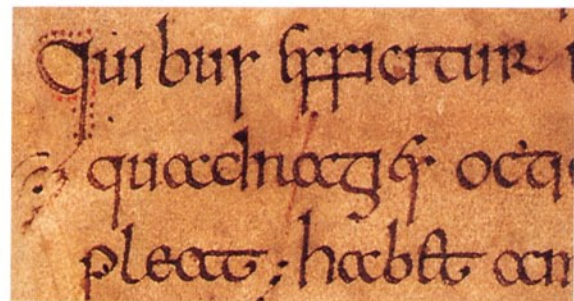 Quibus efficitur
quadragies octie
pleat; habet am